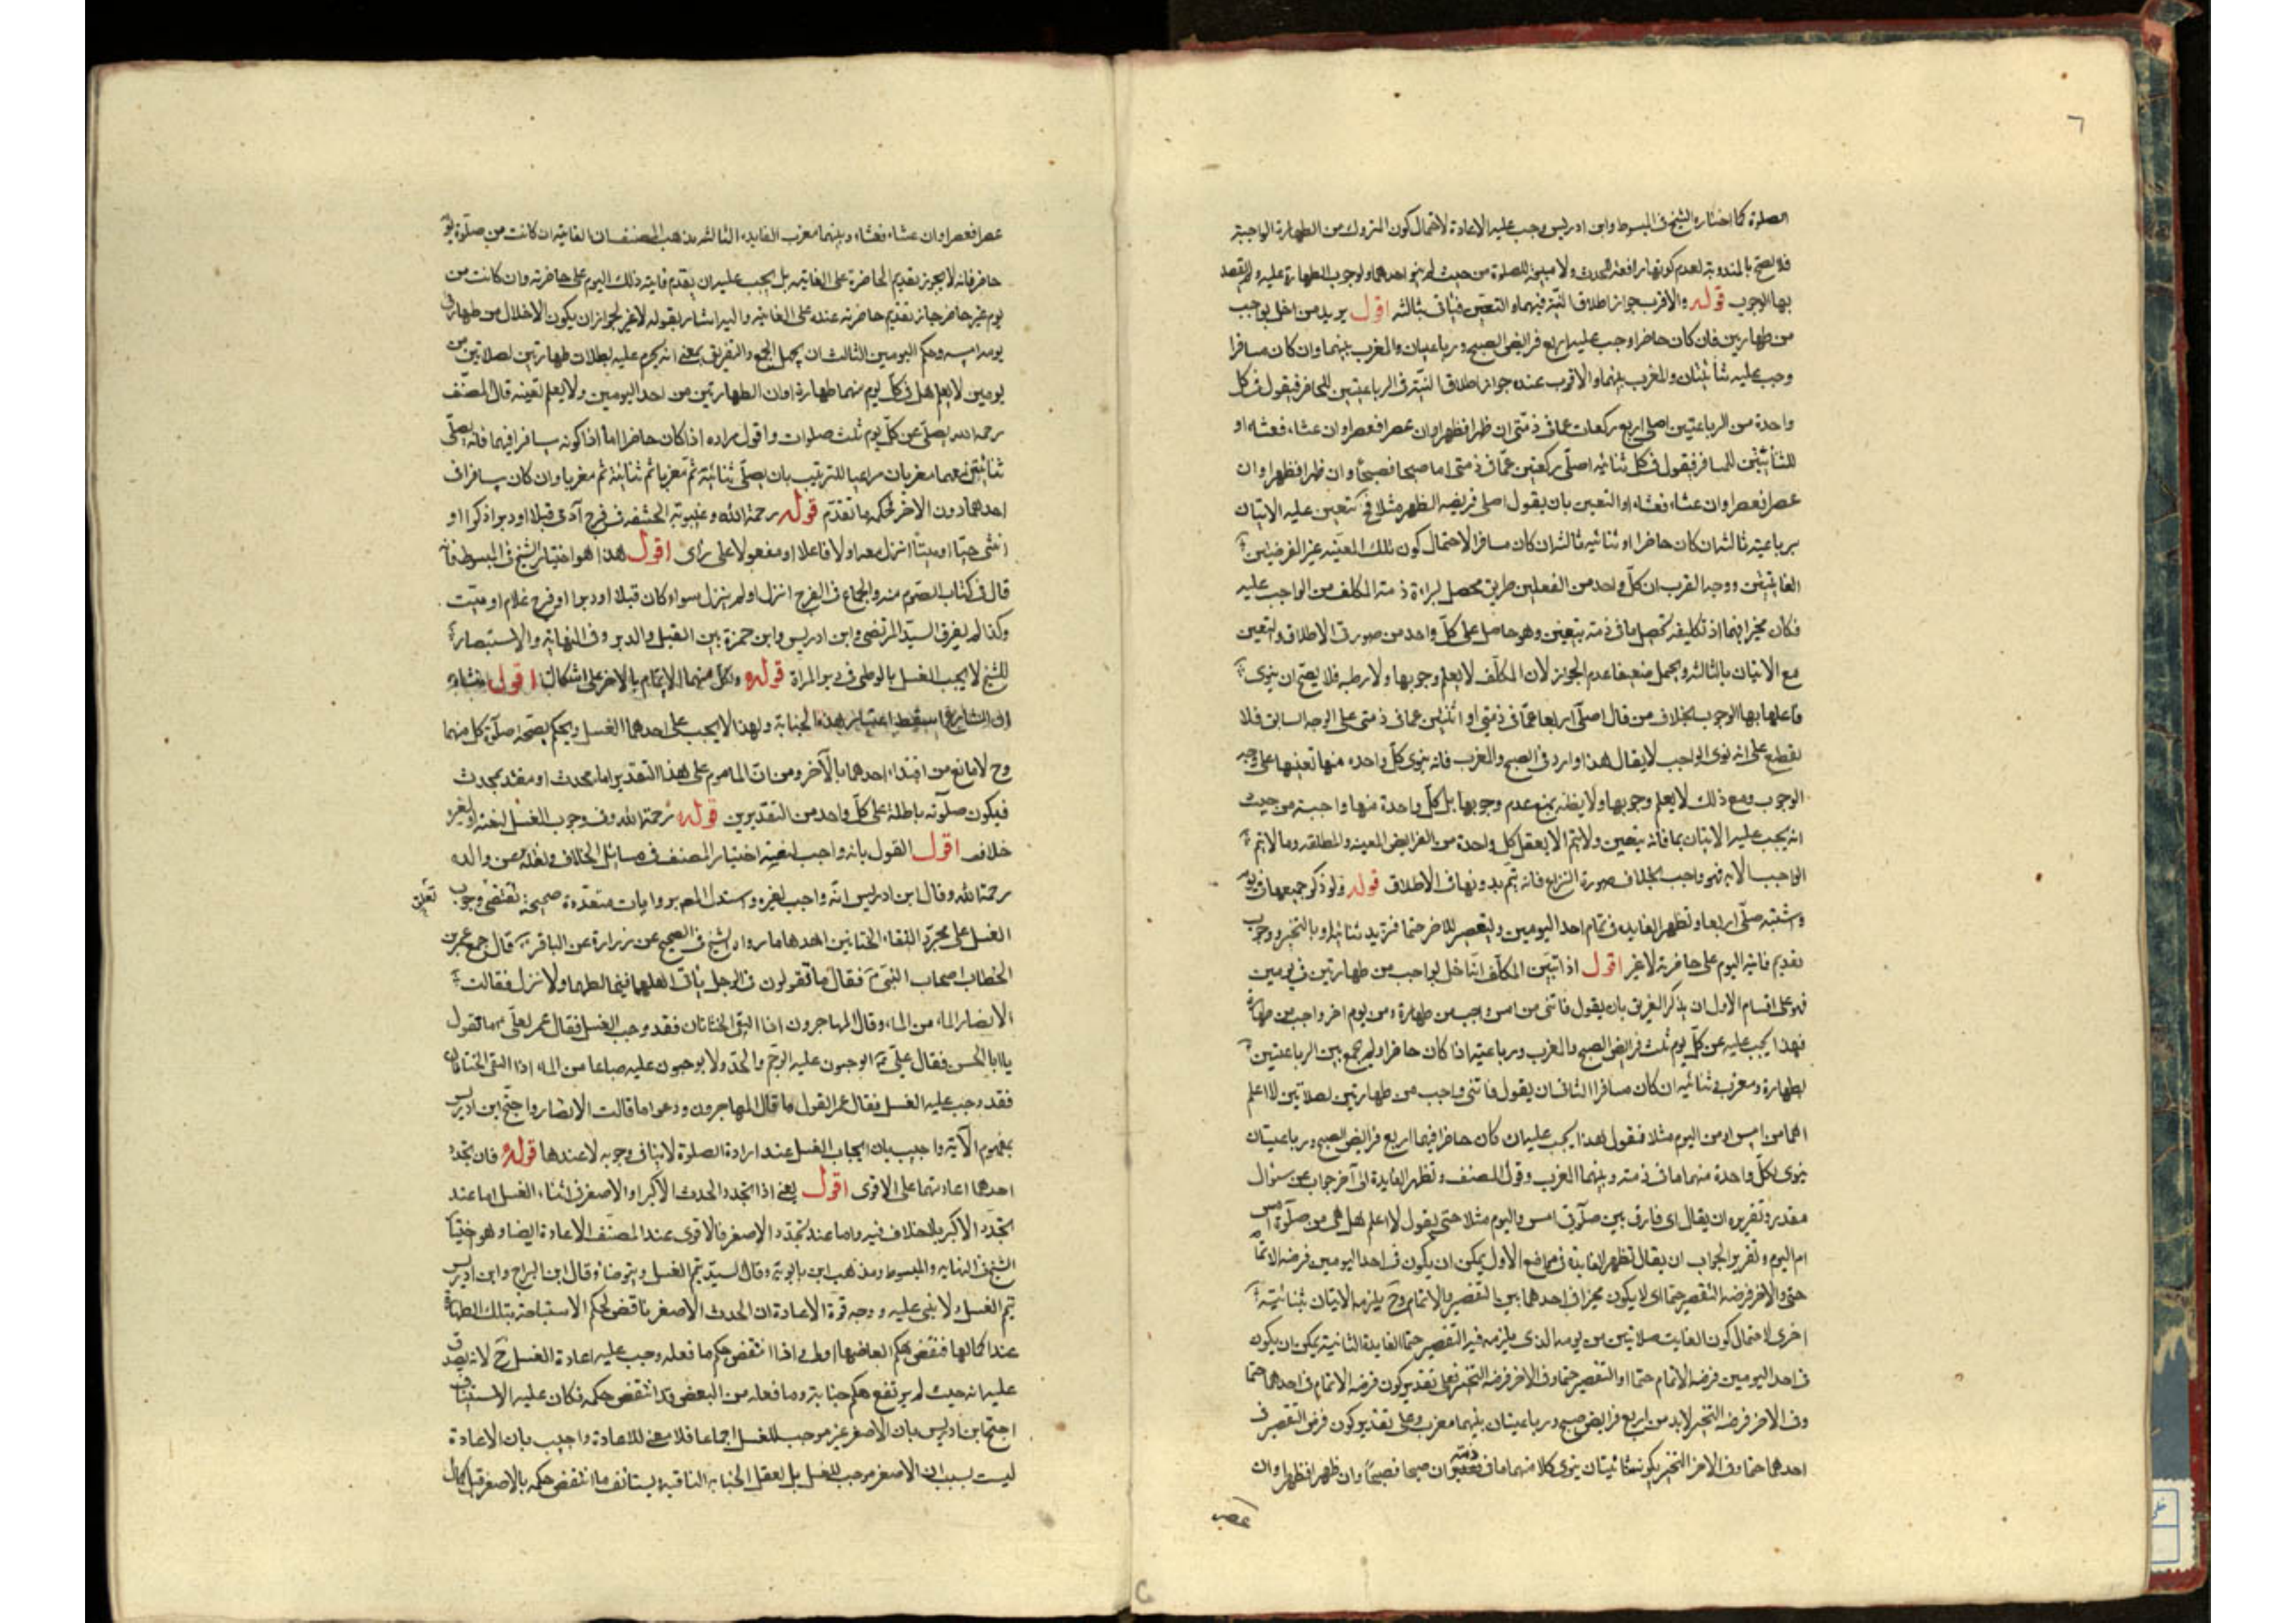 ٦
الصلوة كما اختاره الشيخ فى المبسوط وابن ادريس وجب عليه الاعادة لاحتمال كون المتروك من الطهارة الواجبة
فلا يصح بالمندوبة لعدم كونها رافعة للحدث ولا مبيحة للصلوة من حيث لم ينو احدهما ولوجوب الطهارة عليه ولم يقصد
بها الوجوب قوله والاقرب جواز اطلاق النية فيهما والتعيين فياتى بثالثة اقول يريد من اخل بواجب
من طهارتين فان كان حاضرا وجب عليه اربع فرايض الصبح ورباعيتان والمغرب بينهما وان كان مسافرا
وجب عليه ثنائيتان والمغرب بينهما والاقرب عنده جواز اطلاق النية فى الرباعيتين للحاضر فيقول فى كل
واحدة من الرباعيتين اصلى اربع ركعات عما فى ذمتى ان ظهرا فظهرا وان عصرا فعصرا وان عشاء فعشاء او
للثنائيتين للمسافر فيقول فى كل ثنائية اصلى ركعتين عما فى ذمتى اما صبحا فصبحا وان ظهرا فظهرا وان
عصرا فعصرا وان عشاء فعشاء او التعيين بان يقول اصلى فريضة الظهر مثلا فح يتعين عليه الاتيان
برباعية ثالثة ان كان حاضرا او ثنائية ثالثة ان كان مسافرا لاحتمال كون تلك المعينة غير الفرضين
الفائتتين ووجه القرب ان كل واحد من الفعلين طريق محصل لبراءة ذمة المكلف من الواجب عليه
فكان مخيرا فيهما اذ تكليفه تحصيل ما فى ذمته بتعيين وهو حاصل على كل واحد من صورتى الاطلاق والتعيين
مع الاتيان بالثالثة ويحتمل ضعيفا عدم الجواز لان المكلف لا يعلم وجوبها ولا يظنه فلا يصح ان ينوى
فاعلها بها الوجوب بخلاف من قال اصلى اربعا عما فى ذمتى او اثنتين عما فى ذمتى على الوجه السابق فلا
يقطع على انه نوى الواجب لا يقال هذا وارد فى الصبح والمغرب فانه ينوى كل واحدة منها تعينها على وجه
الوجوب ومع ذلك لا يعلم وجوبها ولا يظنه بمنع عدم وجوبها بل كل واحدة منها واجبة من حيث
انه يجب عليه الاتيان بما فاته بتعيين ولا يتم الا بفعل كل واحدة من الفرايض المعينة والمطلقة وما لا يتم
الواجب الا به فهو واجب بخلاف صورة النزاع فانه يتم بدونها فى الاطلاق قوله ولو ذكر جمعهما فى يوم
واشتبه صلى اربعا وتظهر الفايدة فى تمام احد اليومين وتقصير الاخر حتما فتزيد ثنائية او بالتخيير ووجوب
تقديم فائتة اليوم على حاضرته لا غير اقول اذا تيقن المكلف انه اخل بواجب من طهارتين فى يومين
فهو على اقسام الاول ان يذكر التفريق بان يقول فاتنى من امس واجب من طهارة ومن يوم اخر واجب من طهارة
فهذا يجب عليه عن كل يوم ثلث فرايض الصبح والمغرب ورباعية اذا كان حاضرا ولم يجمع بين الرباعيتين
بطهارة ومغرب وثنائية ان كان مسافرا الثانى ان يقول فاتنى واجب من طهارتين لصلاتين لا اعلم
اهما من امس او من اليوم مثلا فنقول هذا يجب عليه ان كان حاضرا فيهما اربع فرايض الصبح ورباعيتان
ينوى بكل واحدة منهما ما فى ذمته وبينهما المغرب وقول المصنف وتظهر الفايدة الى آخر جواب عن سؤال
مقدر وتقريره ان يقال اى فارق بين صلوتى امس واليوم مثلا حتى يقول لا اعلم هل هى من صلوة امس
ام اليوم وتقرير الجواب ان يقال تظهر الفايدة فى مواضع الاول يمكن ان يكون فى احد اليومين فرضه الاتمام
حتى والاخر فرضه التقصير حتما اى لا يكون مخيرا فى احدهما بين التقصير والاتمام وح يلزمه الاتيان بثنائية
اخرى لاحتمال كون الفايت صلاتين من يومه الذى يلزمه فيه التقصير حتما الفايدة الثانية يمكن ان يكون
فى احد اليومين فرضه الاتمام حتما او التقصير حتما وفى الاخر فرضه التخيير فعلى تقدير كون فرضه الاتمام فى احدهما حتما
وفى الاخر فرضه التخيير لا بد من اربع فرايض صبح ورباعيتان بينهما مغرب وعلى تقدير كون فرضه التقصير فى
احدهما حتما وفى الاخر التخيير يكون ثنائيتان ينوى كلا منهما ما فى ذمته ان صبحا فصبحا وان ظهرا فظهرا وان
عصر
عصرا فعصرا وان عشاء فعشاء وبينهما مغرب الفايدة الثالثة مذهب المصنف ان الفايتة ان كانت من صلوة يوم
حاضر فانه لا يجوز تقديم الحاضرة على الفايتة بل يجب عليه ان يقدم فايتة ذلك اليوم على حاضرته وان كانت من
يوم غير حاضر جاز تقديم حاضرته عنده على الفايتة واليه اشار بقوله لا غير لجواز ان يكون الاخلال من طهارتى
يومه امسه وحكم اليومين الثالث ان يحتمل الجمع والتفريق بمعنى انه يجزم عليه بطلان طهارتين لصلاتين من
يومين لا يعلم هل فى كل يوم منهما طهارة او ان الطهارتين من احد اليومين ولا يعلم تعينه قال المصنف
رحمه الله يصلى عن كل يوم ثلث صلوات واقول مراده اذا كان حاضرا اما اذا كونه مسافرا فيهما فانه يصلى
ثنائيتين معهما مغربان مراعيا للترتيب بان يصلى ثنائية ثم مغربا ثم ثنائية ثم مغربا وان كان مسافرا فى
احدهما دون الاخر فحكمه ما تقدم قوله رحمة الله وغيبوبة الحشفة فى فرج آدمى قبلا او دبر ذكرا او
انثى حيا او ميتا انزل معه او لا فاعلا او مفعولا على رأى اقول هذا هو اختيار الشيخ فى المبسوط فانه
قال فى كتاب الصوم منه والجماع فى الفرج انزل او لم ينزل سواء كان قبلا او دبرا او فرج غلام او ميت
وكذا لم يفرق السيد المرتضى وابن ادريس وابن حمزة بين القبل والدبر وفى النهاية والاستبصار
للشيخ لا يجب الغسل بالوطى فى دبر المراة قوله ولكل منهما الايتمام بالاخر على اشكال اقول منشاه
ان الشارع اسقط اعتبار هذه الجنابة ولهذا لا يجب على احدهما الغسل ويحكم بصحة صلوة كل منهما
وح لا مانع من اقتداء احدهما بالآخر ومن ان الماموم على هذا التقدير اما محدث او مقتد بمحدث
فيكون صلوته باطلة على كل واحد من التقديرين قوله رحمة الله وفى وجوب الغسل لنفسه او لغيره
خلاف اقول القول بانه واجب لنفسه اختيار المصنف فى مسائل الخلاف ونقله عن والده
رحمة الله وقال ابن ادريس انه واجب لغيره واستدل المصـ بروايات متعددة صحيحة تقتضى وجوب
تعلق
الغسل على مجرد التقاء الختانين احدها ما رواه الشيخ فى الصحيح عن زرارة عن الباقر قال جمع عمر بن
الخطاب اصحاب النبى فقال ما تقولون فى الرجل ياتى اهله فيخالطها ولا ينزل فقالت
الانصار الماء من الماء وقال المهاجرون اذا التقى الختانان فقد وجب الغسل فقال عمر لعلى ما تقول
يا ابا الحسن فقال على اتوجبون عليه الرجم والحد ولا توجبون عليه صاعا من الماء اذا التقى الختانان
فقد وجب عليه الغسل فقال عمر القول ما قال المهاجرون ودعوا ما قالت الانصار واحتج ابن ادريس
بمفهوم الآية واجيب بان ايجاب الغسل عند ارادة الصلوة لا ينافى وجوبه لا عندها قوله فان تجدد
احدهما اعادتهما على الاقوى اقول يعنى اذا تجدد الحدث الاكبر او الاصغر فى اثناء الغسل اما عند
تجدد الاكبر بلا خلاف فيه واما عند تجدد الاصغر فالاقوى عند المصنف الاعادة ايضا وهو اختيار
الشيخ فى النهاية والمبسوط ومذهب ابن بابويه وقال السيد يتم الغسل ويتوضأ وقال ابن البراج وابن ادريس
يتم الغسل ولا شى عليه ووجه قوة الاعادة ان الحدث الاصغر ناقض لحكم الاستباحة بتلك الطهارة
عند كمالها فنقض حكم ابعاضها اولى واذا انتقض حكم ما فعله وجب عليه اعادة الغسل ح لانه يصدق
عليه انه حيث لم يرتفع حكم جنابته وما فعله من البعض قد انتقض حكمه فكان عليه الاستيناف
احتج ابن ادريس بان الاصغر غير موجب للغسل اجماعا فلا معنى للاعادة واجيب بان الاعادة
ليست بسبب ان الاصغر موجب للغسل بل لعقل الجنابة الباقية يستانف ما انتقض حكمه بالاصغر قبل اكمال